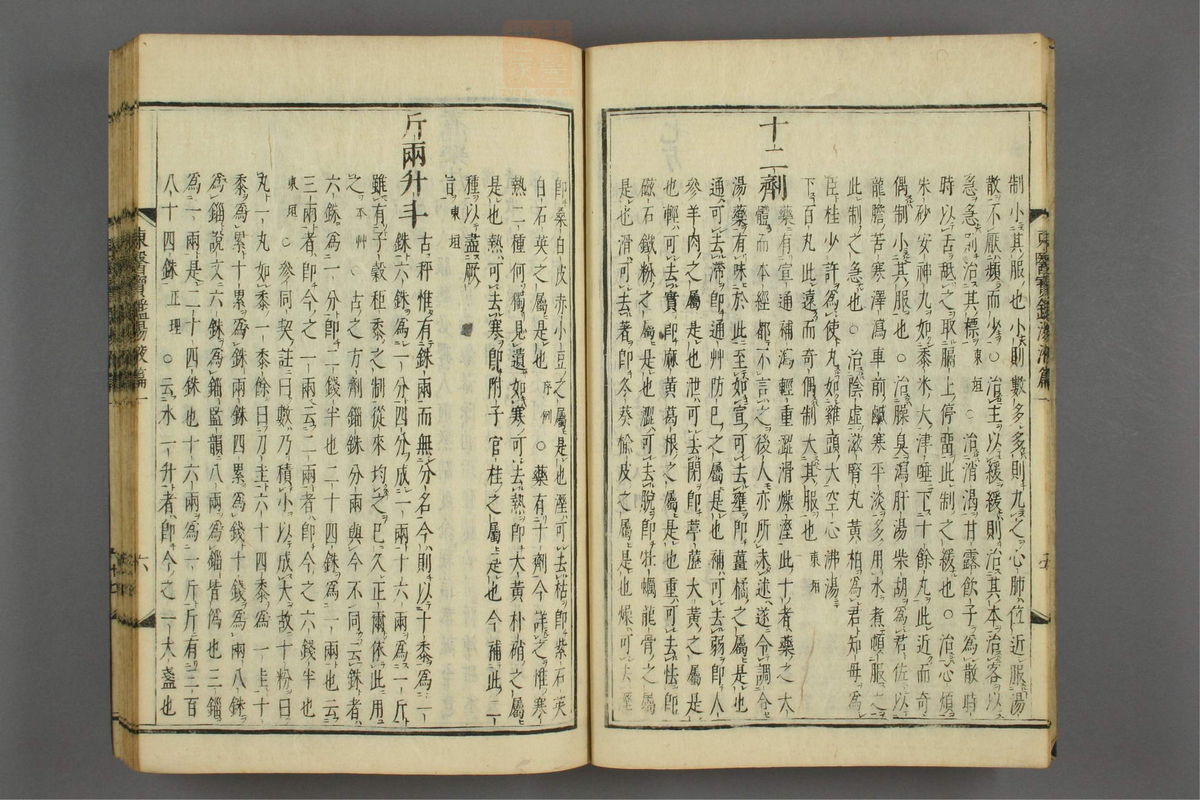 制小其服也小則數多多則九之心肺位近服湯
散不厭頻而少○治主以緩緩則治其本治客以
急急則治其標東垣○治消渴甘露飲子爲散時
時以舌䑛之取膈上停留此制之緩也○治心煩
朱砂安神丸如黍米大津唾下十餘丸此近而奇
偶制小其服也○治臊臭瀉肝湯柴胡爲君佐以
龍膽苦寒澤瀉車前鹹寒平淡多用水煮頓服之
此制之急也○治陰虛滋腎丸黃柏爲君知母爲
臣桂少許爲使丸如雞頭大空心沸湯
下百丸此遠而奇偶制大其服也東垣
十二劑
藥有宣通補瀉輕重澀滑燥溼此十者藥之大
體而本經都不言之後人亦所未述遂令調合
湯藥有昧於此至如宣可去壅卽薑橘之屬是也
通可去滯卽通艸防已之屬是也補可去弱卽人
參羊肉之屬是也泄可去閉卽葶藶大黃之屬是
也輕可去實卽麻黃葛根之屬是也重可去怯卽
磁石鐵粉之屬是也澀可去脫卽牡蠣龍骨之屬
是也滑可去著卽冬葵楡皮之屬是也燥可去溼
卽桑白皮赤小豆之屬是也溼可去枯卽紫石英
白石英之屬是也序例○藥有十劑今詳之惟寒
熱二種何獨見遺如寒可去熱卽大黃朴硝之屬
是也熱可去寒卽附子官桂之屬是也今補此二
種以盡厥
旨東垣
斤兩升斗
古秤惟有銖兩而無分名今則以十黍爲一
銖六銖爲一分四分成一兩十六兩爲一斤
雖有子穀秬黍之制從來均之已久正爾依此用
之本艸○古之方劑錙銖分兩與今不同云銖者
六銖爲一分卽二錢半也二十四銖爲一兩也云
三兩者卽今之一兩云二兩者卽今之六錢半也
東垣○參同契註曰數乃積小以成大故十粉曰
丸一丸如黍一黍餘曰刀圭六十四黍爲一圭十
黍爲累十累爲銖兩銖四累爲錢十錢爲兩八銖
爲錙說文六銖爲錙監韻八兩爲錙皆爲也三錙
爲一兩是二十四銖也十六兩爲一斤斤有三百
八十四銖正理○云水一升者卽今之一大盞也
東醫寶鑑湯液篇一
五
東醫寶鑑湯液篇一
六